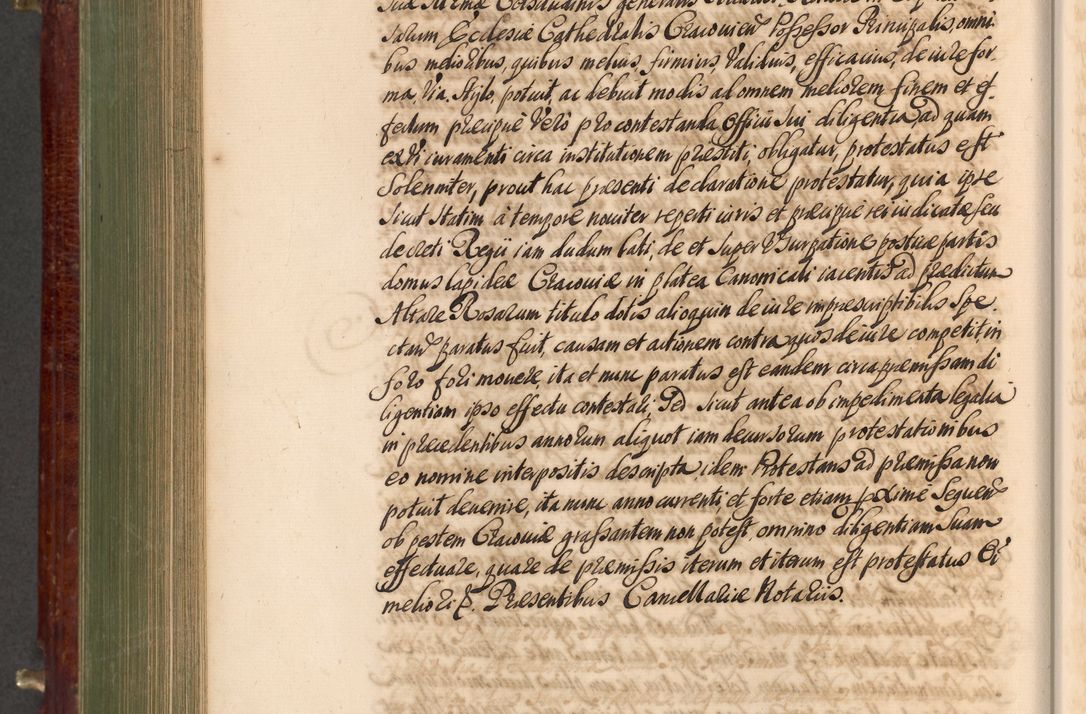 talum Ecclesiæ Cathedralis Cracovien Possessor Principalis, omni-
bus melioribus, quibus melius, firmius, validius, efficacius, de iure for-
ma, via, stylo, potuit, ac debuit modis ad omnem meliorem finem et ef-
fectum præcipuè verò pro contestanda Officii sui diligentia ad quam
ex vi iuramenti circa institutionem præstiti, obligatur, protestatus est
Solenniter, prout hac præsenti declaratione protestatur, quia ipse
sicut statim à tempore noviter reperti iuris et præcipuè rei iudicatæ seu
decreti Regii iam dudum lati, de et super usurpatione posticæ partis
domus lapideæ Cracoviæ in platea Canonicali iacentis ad prædictum
Altare Rosarum titulo dotis alioquin de iure imprescriptibilis Spe-
ctan paratus fuit, causam et actionem contra quos de iure competit, in
foro fori movere, ita et nunc paratus est eandem circa præmissam di
ligentiam ipso effectu contestari, Sed sicut antea ob impedimenta legalia
in præcedentibus annorum aliquot iam decursorum protestationibus
eo nomine interpositis descripta, idem Protestans ad præmissa non
potuit devenire, ita nunc anno currenti, et forte etiam proximè Sequen
ob pestem Cracoviæ grassantem non potest, omnino diligentiam Suam
effectuare, quare de præmissis iterum et iterum est protestatus Et
meliori &. Præsentibus Cancellariæ Notariis.